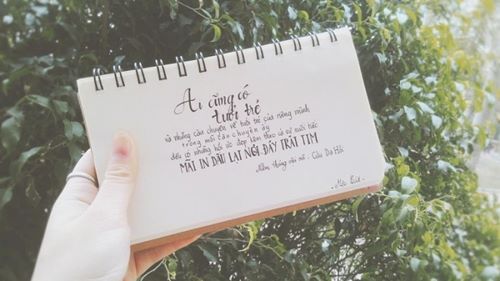 Ai cũng có
tuổi trẻ
và những câu chuyện về tuổi trẻ của riêng mình
trong mỗi câu chuyện ấy
đều có những hồi ức đẹp lẫn theo cả sự nuối tiếc
MÃI IN DẤU LẠI NƠI ĐÁY TRÁI TIM
Năm tháng vội vã - Cửu Dạ Hồi